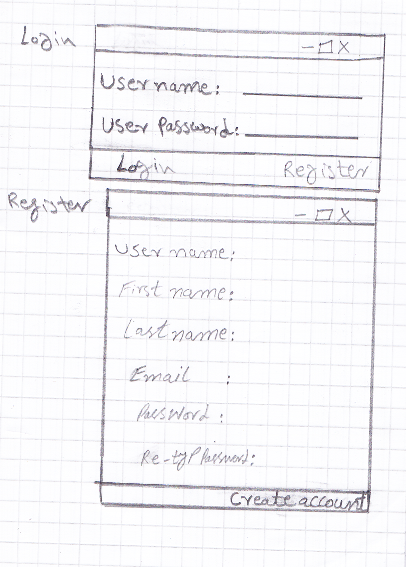 Login
- □ X
Username:
User Password:
Login Register
Register
- □ X
User name:
First name:
Last name:
Email :
Password :
Re-typ Password:
Create account